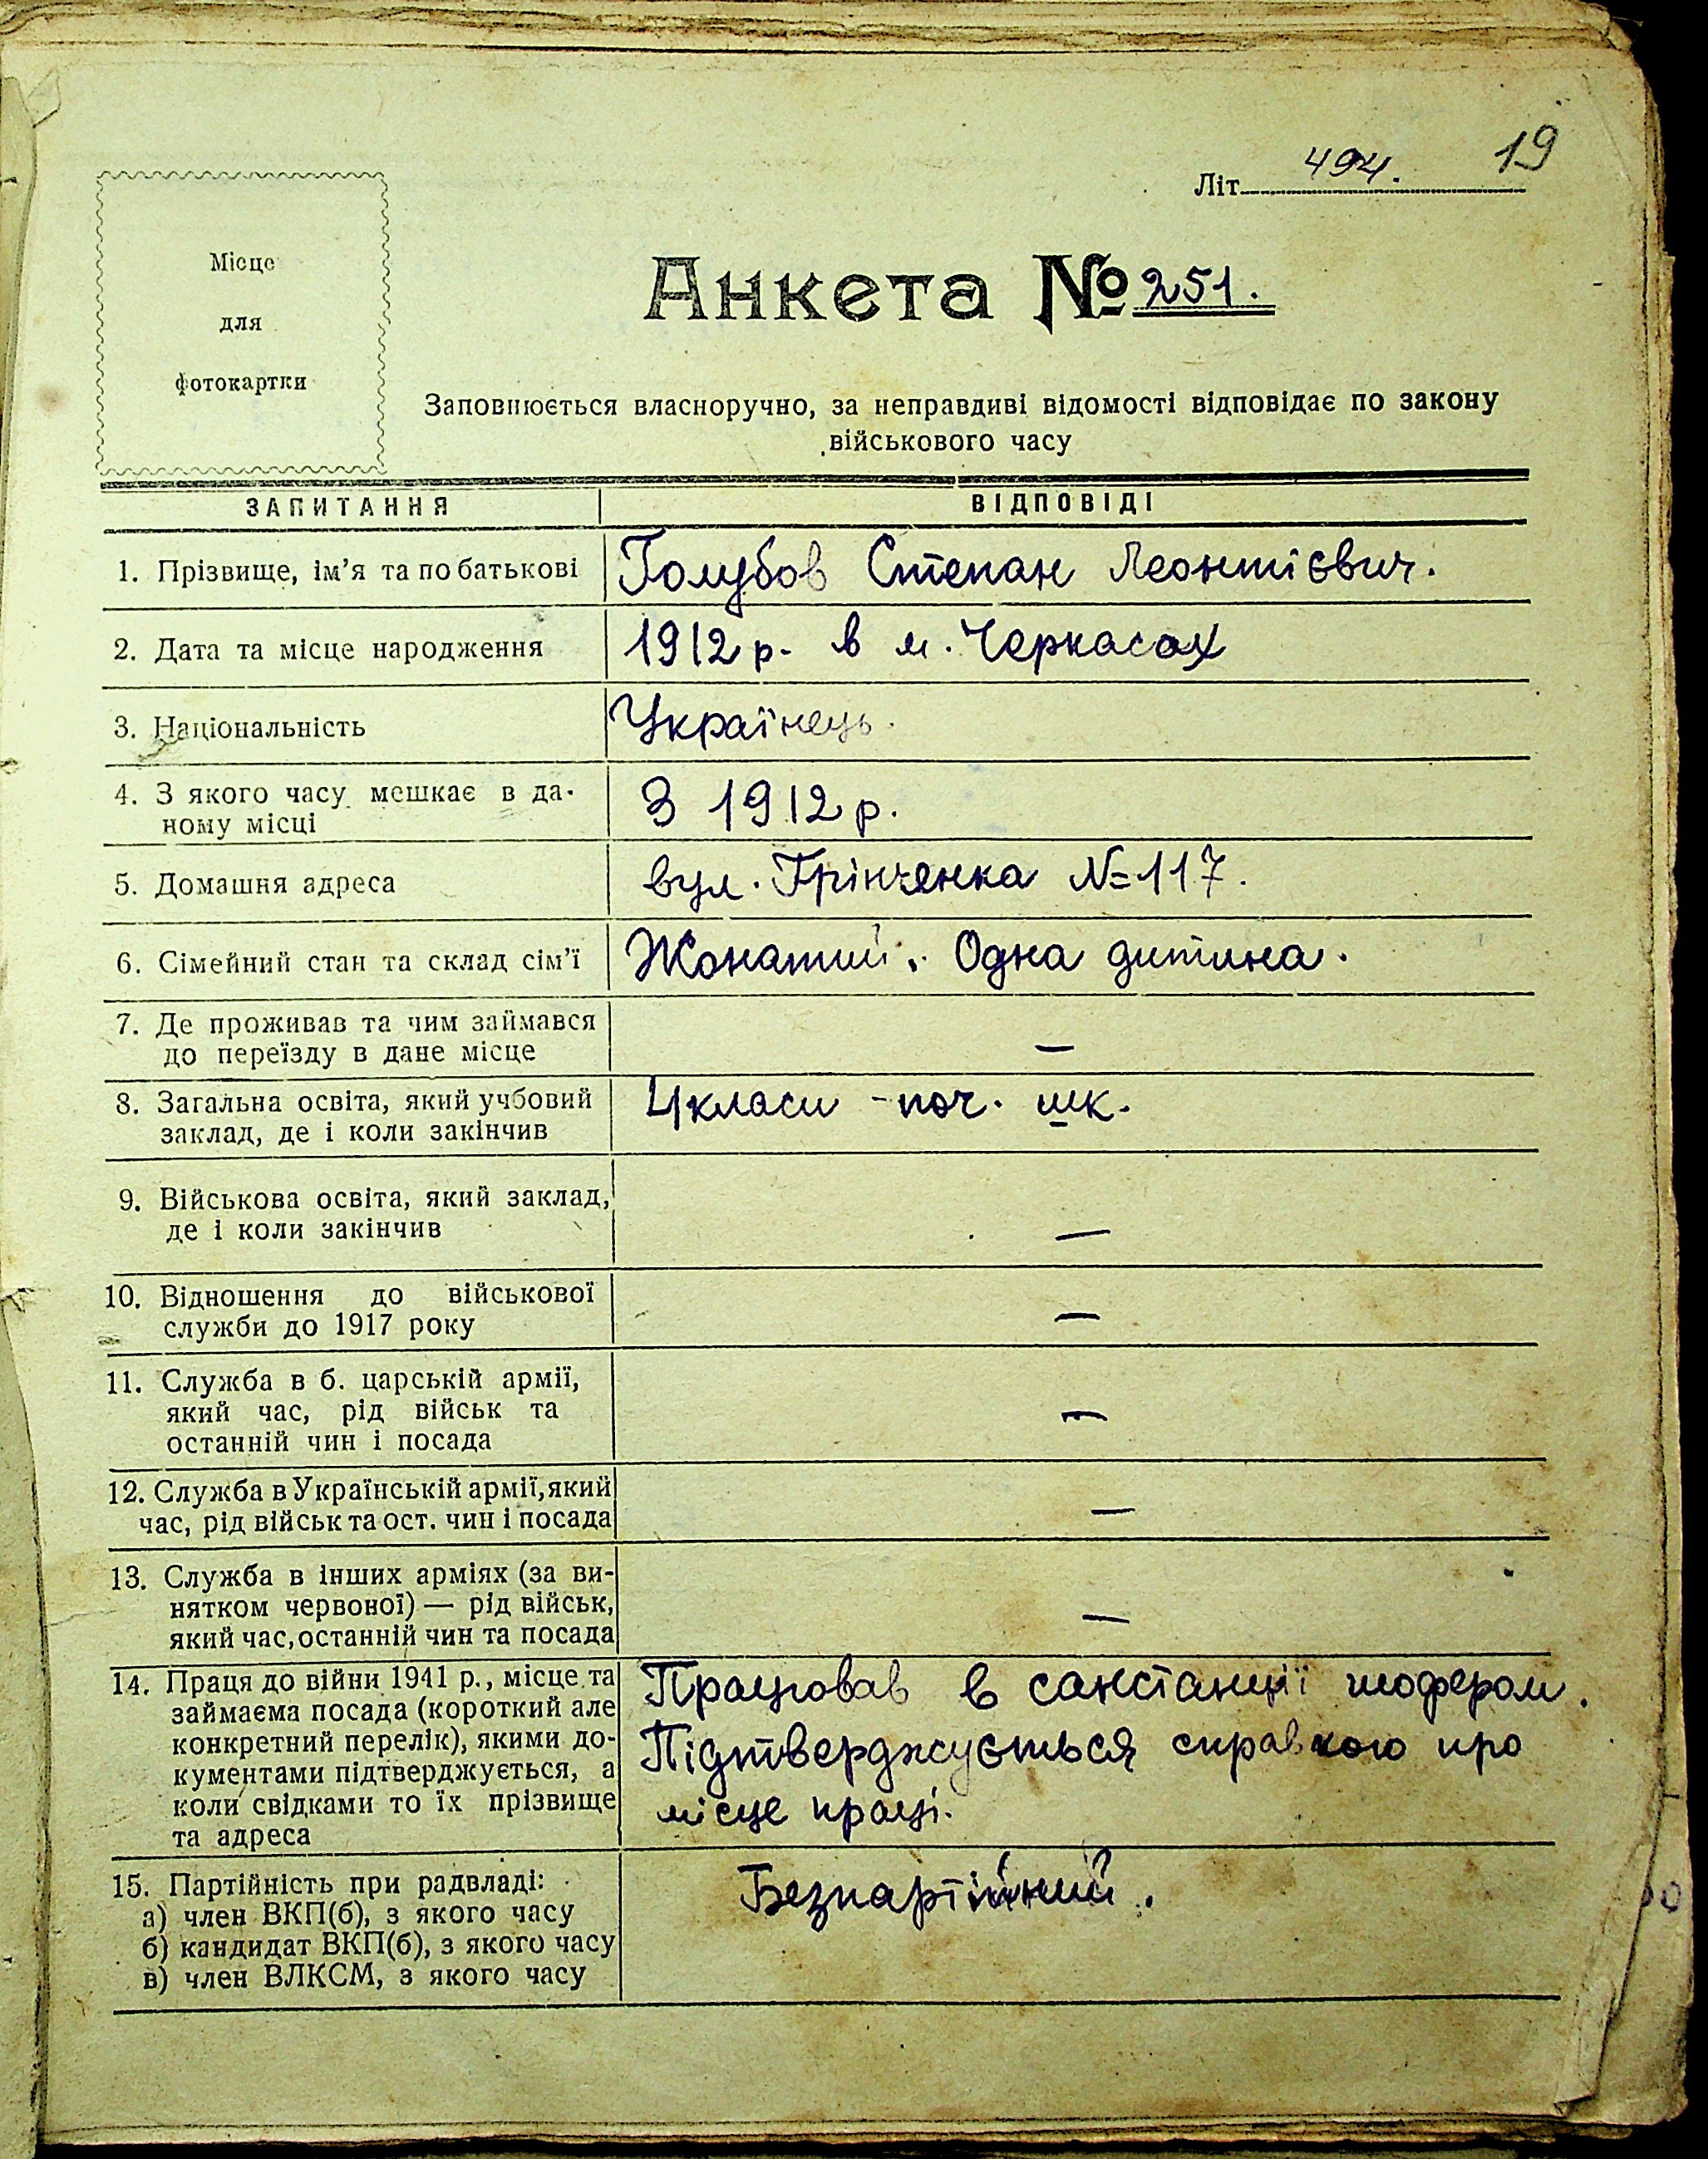 19
Літ 494.
Місце
для
фотокартки
Анкета № 251.
Заповнюється власноручно, за неправдиві відомості відповідає по закону
військового часу
ЗАПИТАННЯ ВІДПОВІДІ
1. Прізвище, ім'я та по батькові Голубов Степан Леонтієвич.
2. Дата та місце народження 1912 р. в м. Черкасах
3. Національність Українець.
4. З якого часу мешкає в да-
ному місці З 1912 р.
5. Домашня адреса вул. Грінченка № 117.
6. Сімейний стан та склад сім'ї Жонатий. Одна дитина.
7. Де проживав та чим займався
до переїзду в дане місце —
8. Загальна освіта, який учбовий 4 класи - поч. шк.
заклад, де і коли закінчив
9. Військова освіта, який заклад,
де і коли закінчив —
10. Відношення до військової
служби до 1917 року —
11. Служба в б. царській армії,
який час, рід військ та —
останній чин і посада
12. Служба в Українській армії, який
час, рід військ та ост. чин і посада —
13. Служба в інших арміях (за ви-
нятком червоної) — рід військ, —
який час, останній чин та посада
14. Праця до війни 1941 р., місце та Працював в санстанції шофером.
займаєма посада (короткий але
конкретний перелік), якими до- Підтверджується справкою про
кументами підтверджується, а
коли свідками то їх прізвище місце праці.
та адреса
15. Партійність при радвладі: Безпартійний.
а) член ВКП(б), з якого часу
б) кандидат ВКП(б), з якого часу
в) член ВЛКСМ, з якого часу